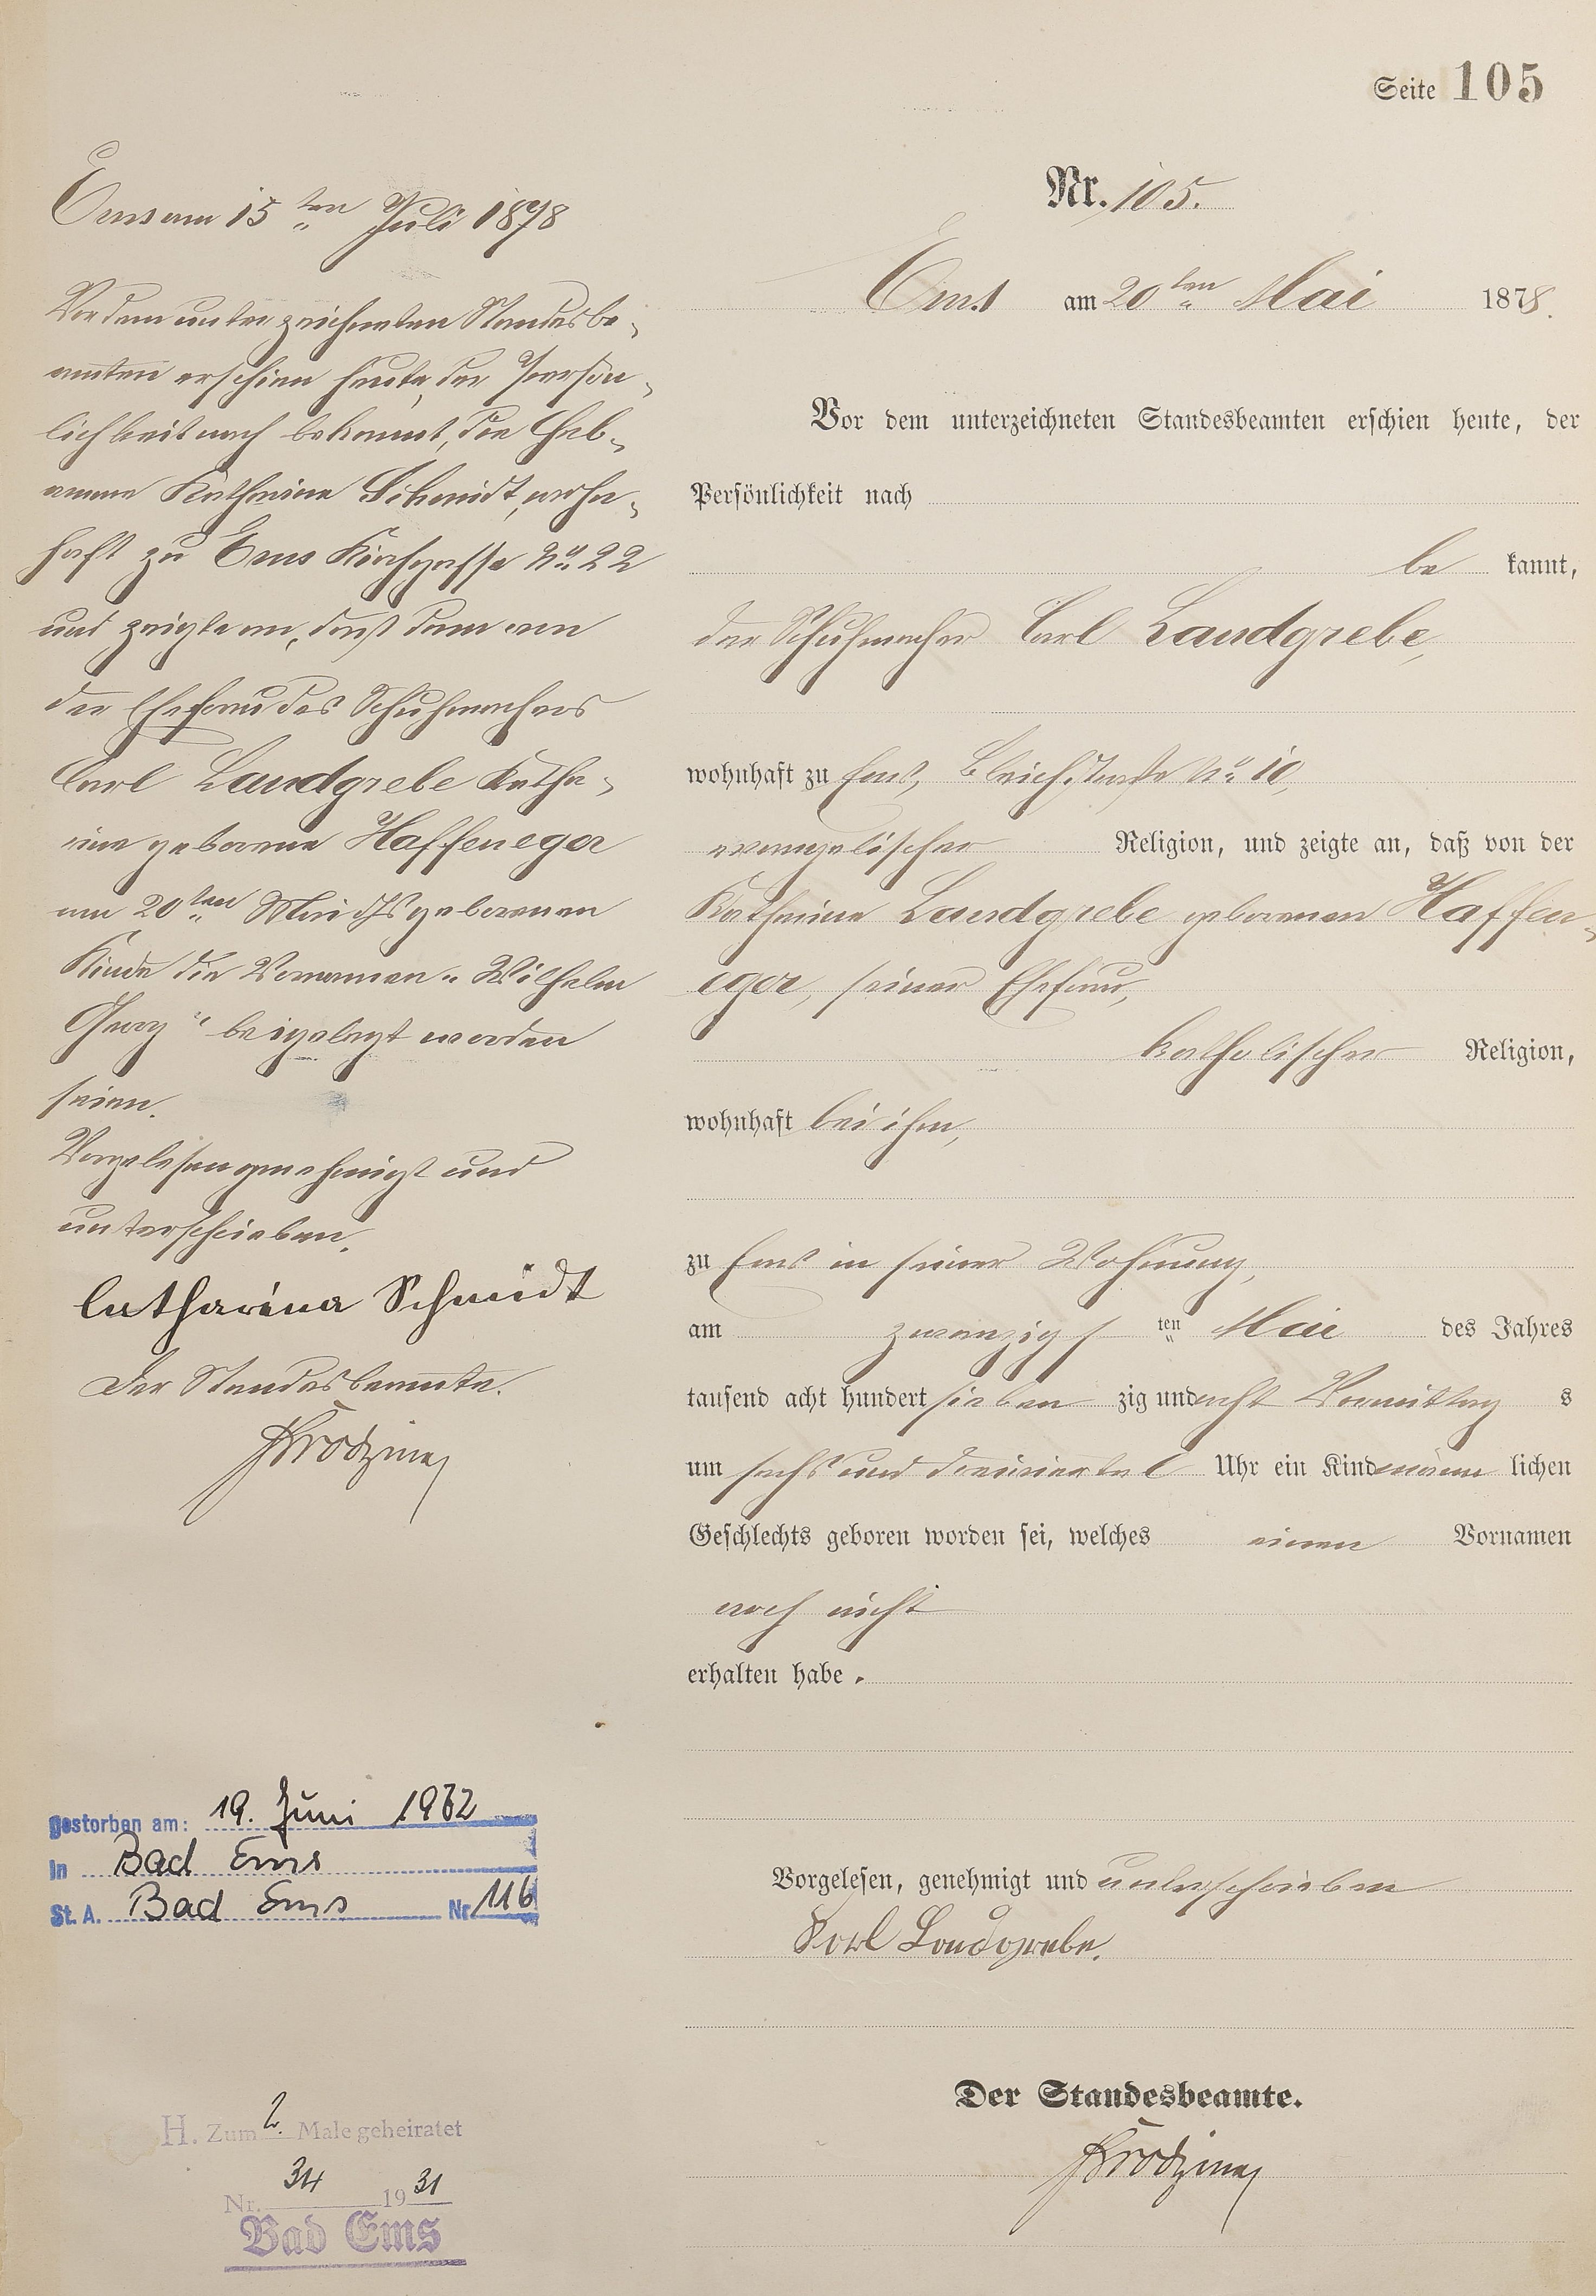 Seite 105
Nr. 105.
Ems am 20ten Mai 1878.
Vor dem unterzeichneten Standesbeamten erschien heute, der
Persönlichkeit nach
be kannt,
der Schuhmacher Carl Landgrebe,
wohnhaft zu Ems, Bleichstraße No 10,
evangelischer Religion, und zeigte an, daß von der
Katharina Landgrebe geborenen Haffen-
eger, seiner Ehefrau,
katholischer Religion,
wohnhaft bei ihm,
zu Ems in seiner Wohnung,
am zwanzigsten Mai des Jahres
tausend acht hundert sieben zig und acht Vormittag s
um sechs und dreiviertel Uhr ein Kind männ lichen
Geschlechts geboren worden sei, welches einen Vornamen
noch nicht
erhalten habe.
Vorgelesen, genehmigt und unterschrieben
Karl Landgrebe.
Der Standesbeamte.
Ems am 15ten Juli 1878
Vor dem unterzeichneten Standesbe-
amten erschien heute, der Persön-
lichkeit nach bekannt, die Heb-
amme Katharina Schmidt, wohn-
haft zu Ems Kirchgasse No 22
und zeigte an, daß dem von
der Ehefrau des Schuhmachers
Carl Landgrebe Katha-
rina geborene Haffeneger
am 20ten Mai ds Js geborenen
Kinde die Vornamen "Wilhelm
Georg" beigelegt worden
seien.
Vorgelesen genehmigt und
unterschrieben.
Catharina Schmidt
Der Standesbeamte.
gestorben am: 19. Juni 1962
In Bad Ems
St. A. Bad Ems Nr 116
H. Zum 2. Male geheiratet
Nr. 34 1931
Bad Ems